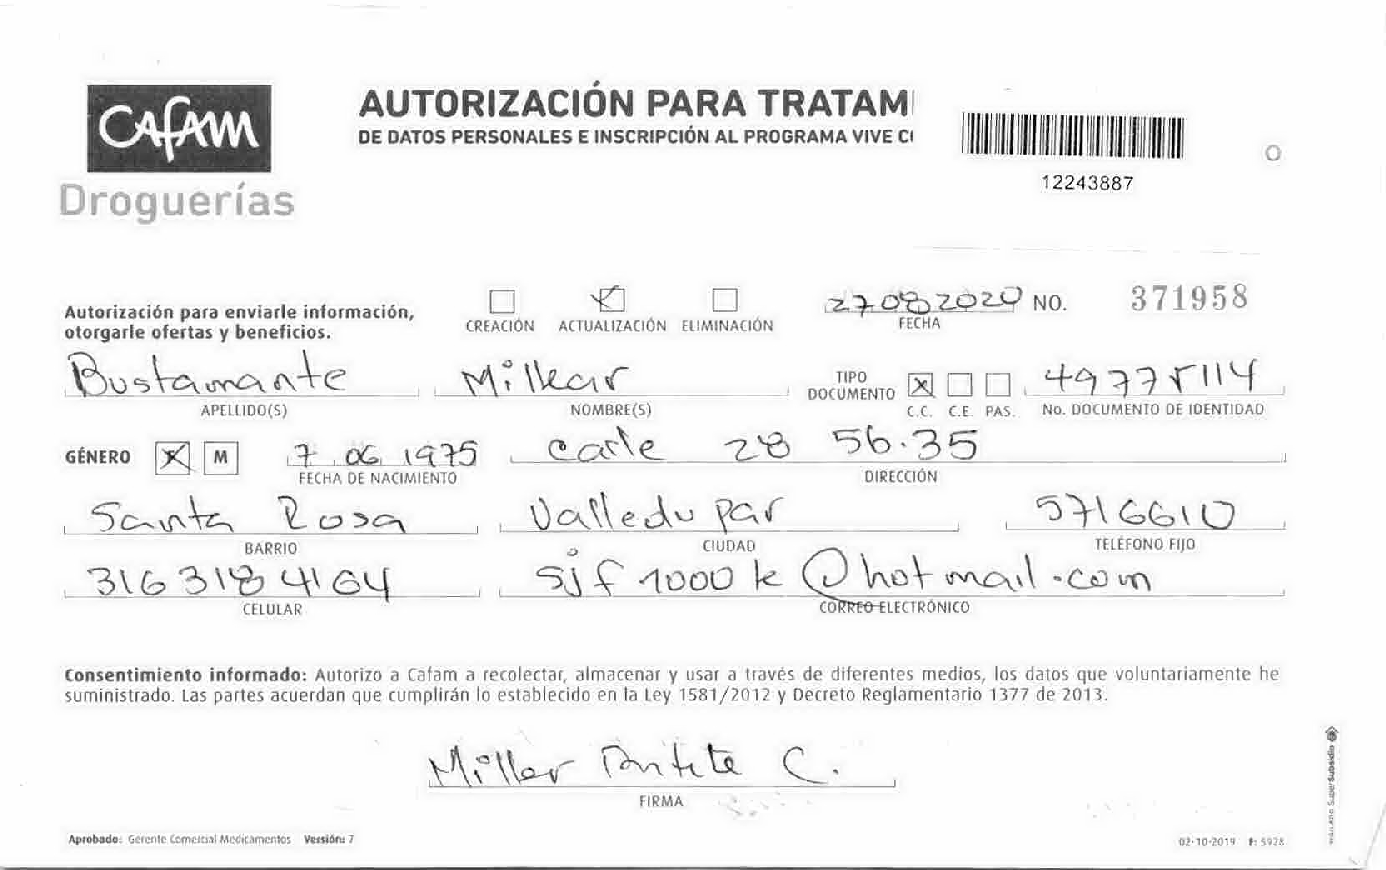 CAFAM
Droguerías
AUTORIZACIÓN PARA TRATAM
DE DATOS PERSONALES E INSCRIPCIÓN AL PROGRAMA VIVE
12243887
Autorización para enviarle información,
otorgarle ofertas y beneficios.
CREACIÓN ACTUALIZACIÓN ELIMINACIÓN
27 08 2020 NO. 371958
FECHA
Bustamante Millear
APELLIDO(S) NOMBRE(S)
TIPO DOCUMENTO X 49775114
C.C. C.E. PAS. No. DOCUMENTO DE IDENTIDAD
GÉNERO X M 7 06 1975 calle 28 56.35
FECHA DE NACIMIENTO DIRECCIÓN
Santa Rosa Valledupar 5716610
BARRIO CIUDAD TELÉFONO FIJO
316 318 4164 sjf1000k@hotmail.com
CELULAR CORREO ELECTRÓNICO
Consentimiento informado: Autorizo a Cafam a recolectar, almacenar y usar a través de diferentes medios, los datos que voluntariamente he
suministrado. Las partes acuerdan que cumplirán lo establecido en la Ley 1581/2012 y Decreto Reglamentario 1377 de 2013.
Miller C.
FIRMA
Aprobado: Gerente Comercial Medicamentos Versión: 7
02-10-2019 F: 5928
SuperSubsidio